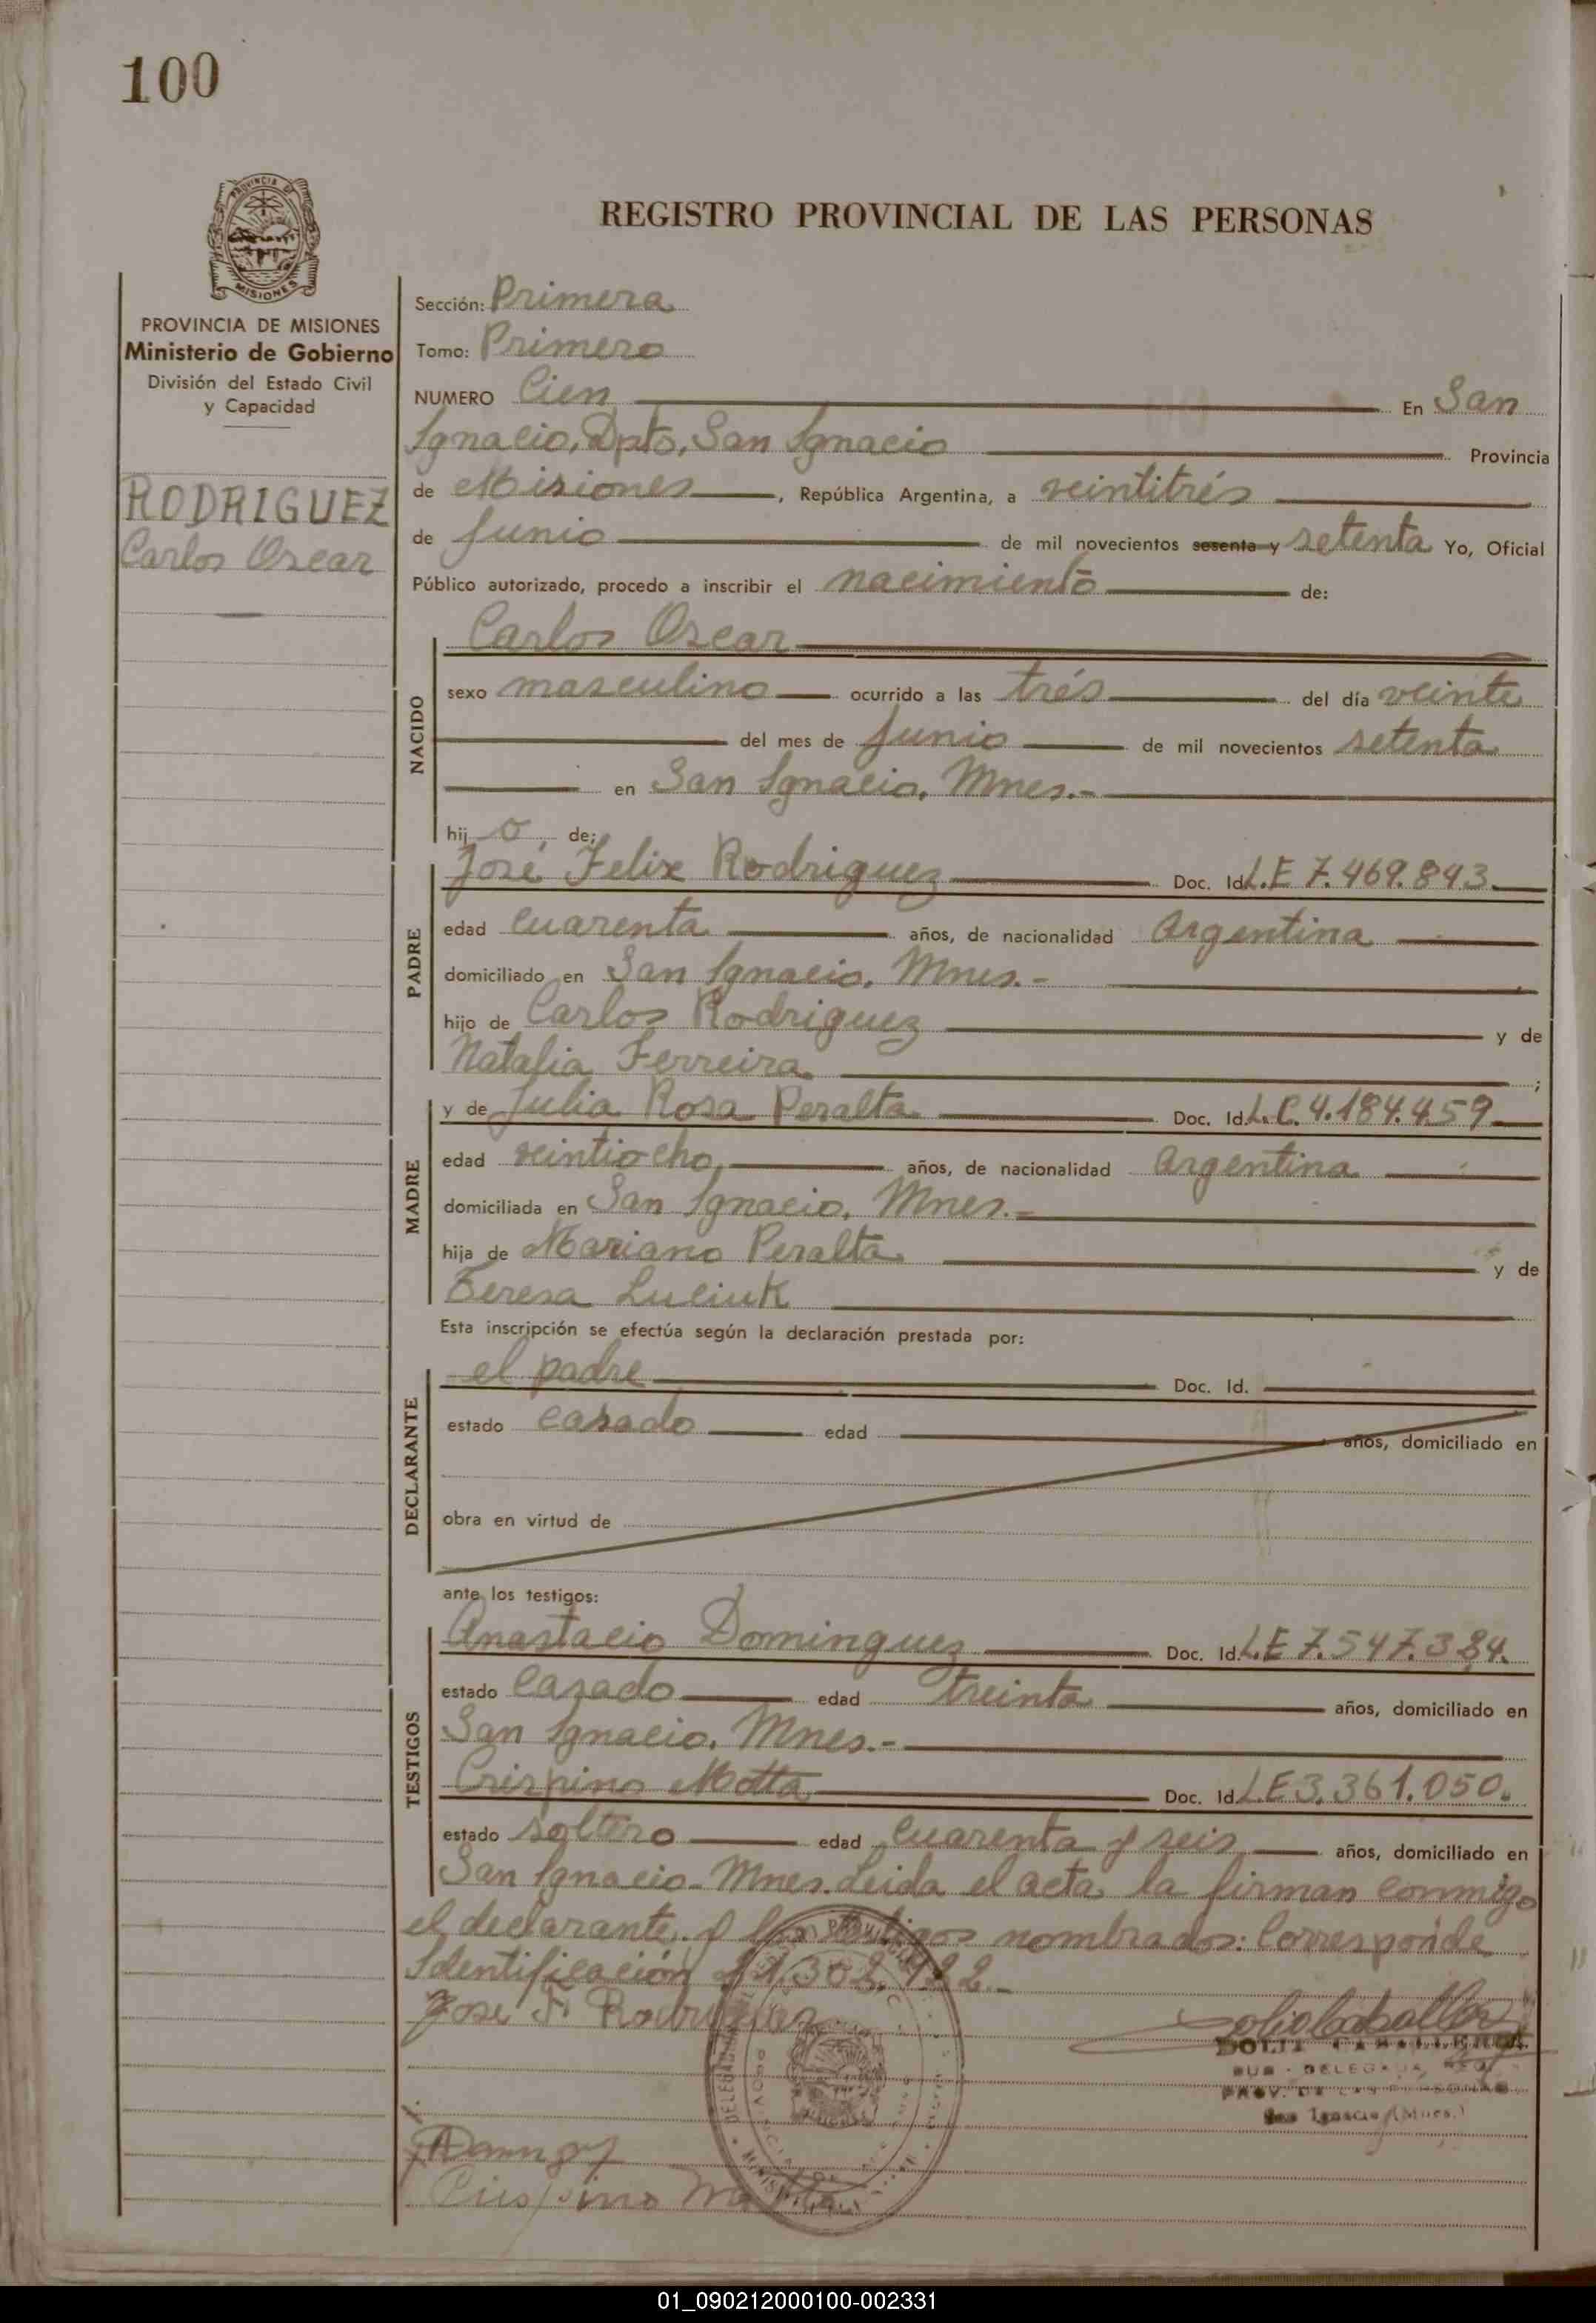 100
PROVINCIA DE
MISIONES
REGISTRO PROVINCIAL DE LAS PERSONAS
PROVINCIA DE MISIONES
Ministerio de Gobierno
División del Estado Civil
y Capacidad
RODRIGUEZ
Carlos Oscar
Sección: Primera
Tomo: Primero
NUMERO Cien En San
Ignacio, Dpto, San Ignacio Provincia
de Misiones, República Argentina, a veintitrés
de Junio de mil novecientos sesenta y setenta Yo, Oficial
Público autorizado, procedo a inscribir el nacimiento de:
NACIDO
Carlos Oscar
sexo masculino ocurrido a las trés del día veinte
del mes de Junio de mil novecientos setenta
en San Ignacio, Mnes.-
hij o de:
PADRE
José Felix Rodriguez Doc. Id. L.E 7.469.843
edad cuarenta años, de nacionalidad Argentina
domiciliado en San Ignacio, Mnes.-
hijo de Carlos Rodriguez y de
Natalia Ferreira ;
MADRE
y de Julia Rosa Peralta Doc. Id. L.C. 4.184.459
edad veintiocho, años, de nacionalidad Argentina
domiciliada en San Ignacio, Mnes.-
hija de Mariano Peralta y de
Teresa Luciuk
Esta inscripción se efectúa según la declaración prestada por:
DECLARANTE
el padre Doc. Id.
estado casado edad años, domiciliado en
obra en virtud de
ante los testigos:
TESTIGOS
Anastacio Dominguez Doc. Id. L.E 7.547.384.
estado casado edad treinta años, domiciliado en
San Ignacio, Mnes.-
Crispino Motta Doc. Id. L.E 3.361.050.
estado soltero edad cuarenta y seis años, domiciliado en
San Ignacio- Mnes. Leida el acta, la firman conmigo
el declarante, y los testigos nombrados: Corresponde
Identificación
Jose F. Rodriguez
CABALLERO
SUB - DELEGADA
PROV. DE LAS PERSONAS
San Ignacio (Mnes.)
Crispino
01_090212000100-002331